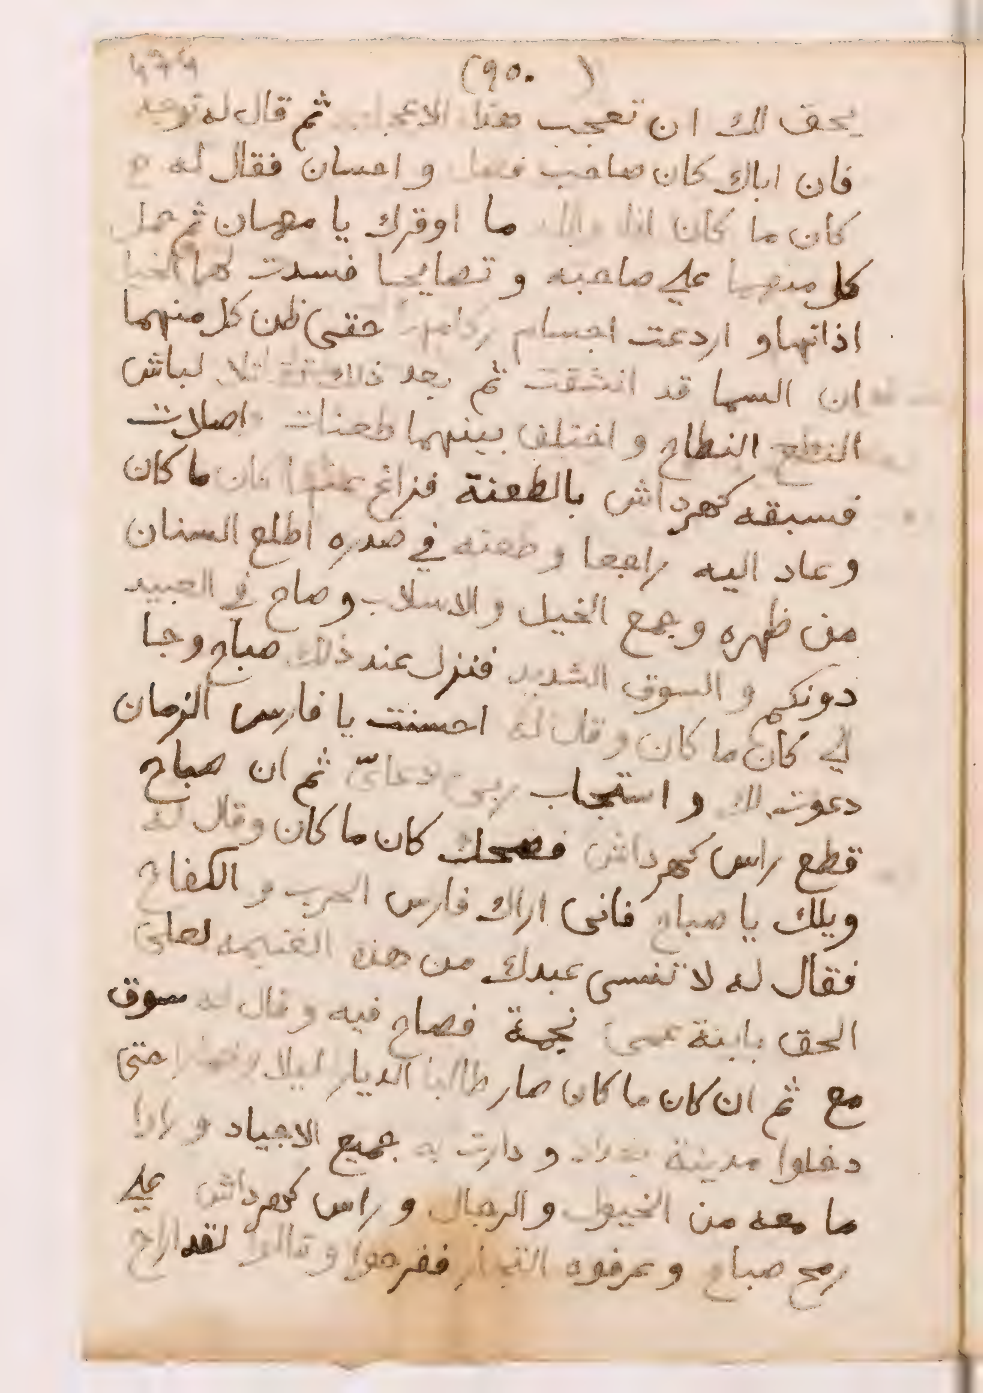 (٩٥٠)
يحق لك ان تعجب هذا ثم قال له توجد
فان اباك كان صاحب فضل و احسان فقال له
كان ما كان ما اوقرك يا مهسان ثم حمل
كل منهما علي صاحبه و تصايحا فسدت لهما
اذانها و اردعت اجسام حقى ظن كل منهما
ان السما قد انشقت ثم بعد ذلك لباش
النطح النطاح و اختلف بينهما طعنات اصلات
فسبقه كهرداش بالطعنة فزاغ عنها كان ما كان
و عاد اليه راجعا و طعنه في صدره اطلع السنان
من ظهره و جمع الخيل و الاسلاب و صاح في العبيد
دونكم و السوق الشديد فنزل عند ذلك صباح وجا
الي كان ما كان و قال له احسنت يا فارس الزمان
دعوت لك و استجاب ربي دعائي ثم ان صباح
قطع راس كهرداش فضحك كان ما كان وقال له
ويلك يا صباح فانى اراك فارس الحرب و الكفاح
فقال له لا تنسى عبدك من هذه الغنيمه لعلى
الحق بابنة عمى نجمة فصاح فيه و قال له سوق
مع ثم ان كان ما كان صار طالبا الديار ليلا حتى
دخلوا مدينة بغداد و دارت به جميع الاجياد و راوا
ما معه من الخيول و الرجال و راس كهرداش علي
رمح صباح و عرفوه التجار ففرحوا و قالوا لقد اراح